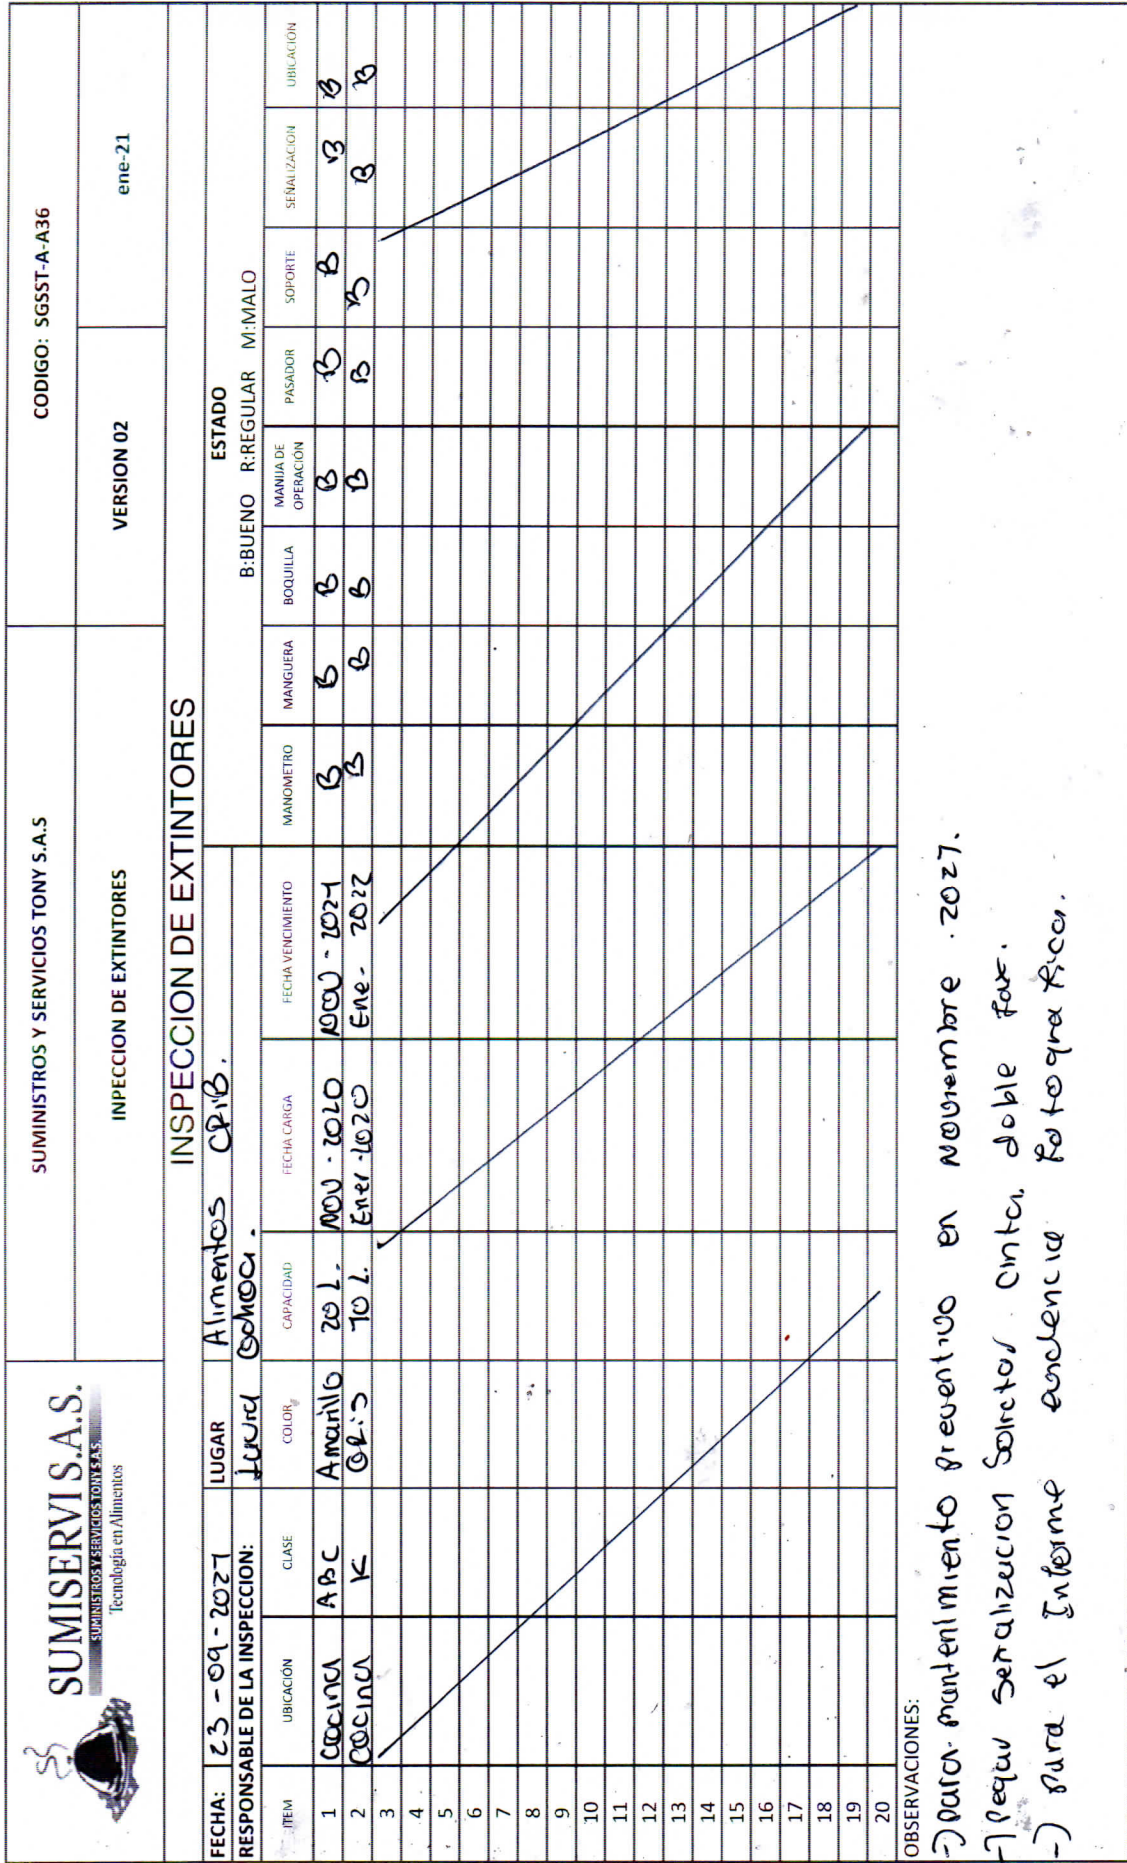 SUMISERVI S.A.S.
SUMINISTROS Y SERVICIOS TONY S.A.S.
Tecnología en Alimentos
SUMINISTROS Y SERVICIOS TONY S.A.S
CODIGO: SGSST-A-A36
INPECCION DE EXTINTORES
VERSION 02
ene-21
INSPECCION DE EXTINTORES
FECHA: 23-09-2021 LUGAR Alimentos
RESPONSABLE DE LA INSPECCION: Lucia Ochoa.
ESTADO
B:BUENO R:REGULAR M:MALO
ITEM UBICACIÓN CLASE COLOR CAPACIDAD FECHA CARGA FECHA VENCIMIENTO MANOMETRO MANGUERA BOQUILLA MANIJA DE OPERACIÓN PASADOR SOPORTE SEÑALIZACIÓN UBICACIÓN
1 cocina ABC Amarillo 20 L. NOV-2020 NOV-2021 B B B B B B B B
2 cocina K Gris 10 L. Ener-2020 Ene-2022 B B B B B B B B
3
4
5
6
7
8
9
10
11
12
13
14
15
16
17
18
19
20
OBSERVACIONES:
-) para mantenimiento preventivo en Noviembre. 2021.
-) pegar señalizacion Solicitar cinta doble faz.
-) para el Informe evidencia fotografica.